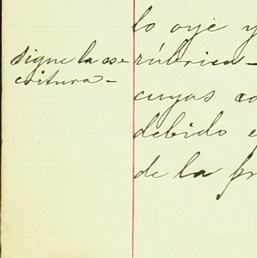 sigue la es-
critura-
lo oyé y
rúbrica-
cuyas co
debido e
de la pr